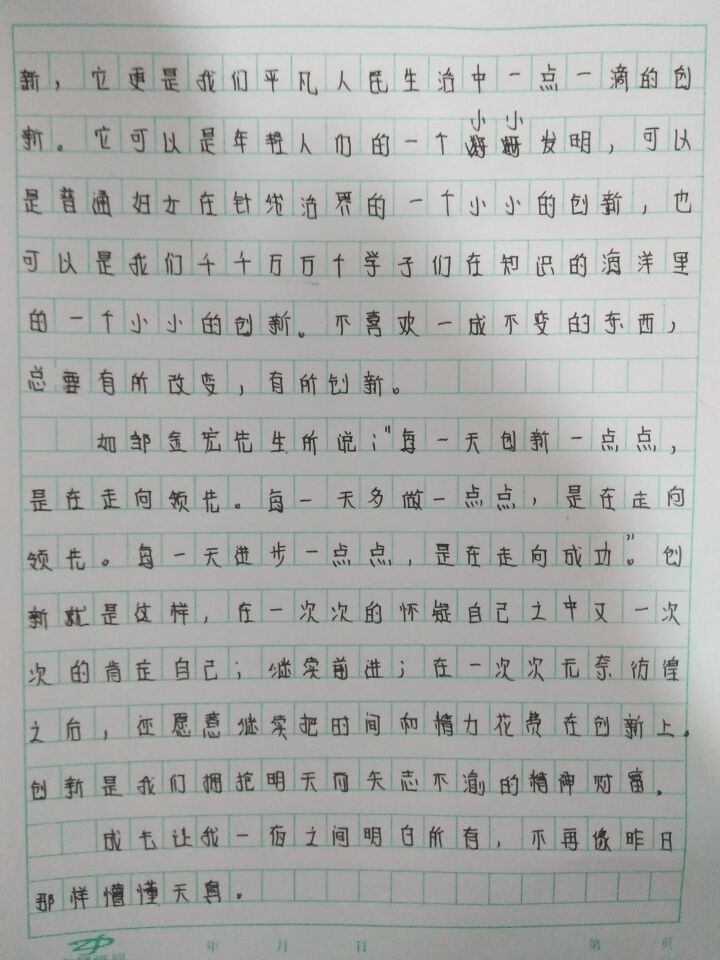 新，它更是我们平凡人民生活中一点一滴的创
新。它可以是年轻人们的一个小小发明，可以
是普通妇女在针线活界的一个小小的创新，也
可以是我们千千万万个学子们在知识的海洋里
的一个小小的创新。不喜欢一成不变的东西，
总要有所改变，有所创新。
如邹金宏先生所说：“每一天创新一点点，
是在走向领先。每一天多做一点点，是在走向
领先。每一天进步一点点，是在走向成功”。创
新就是这样，在一次次的怀疑自己之中又一次
次的肯定自己；继续前进；在一次次无奈彷徨
之后，还愿意继续把时间和精力花费在创新上。
创新是我们拥抱明天而矢志不渝的精神财富。
成长让我一夜之间明白所有，不再像昨日
那样懵懂天真。
年 月 日 第 页